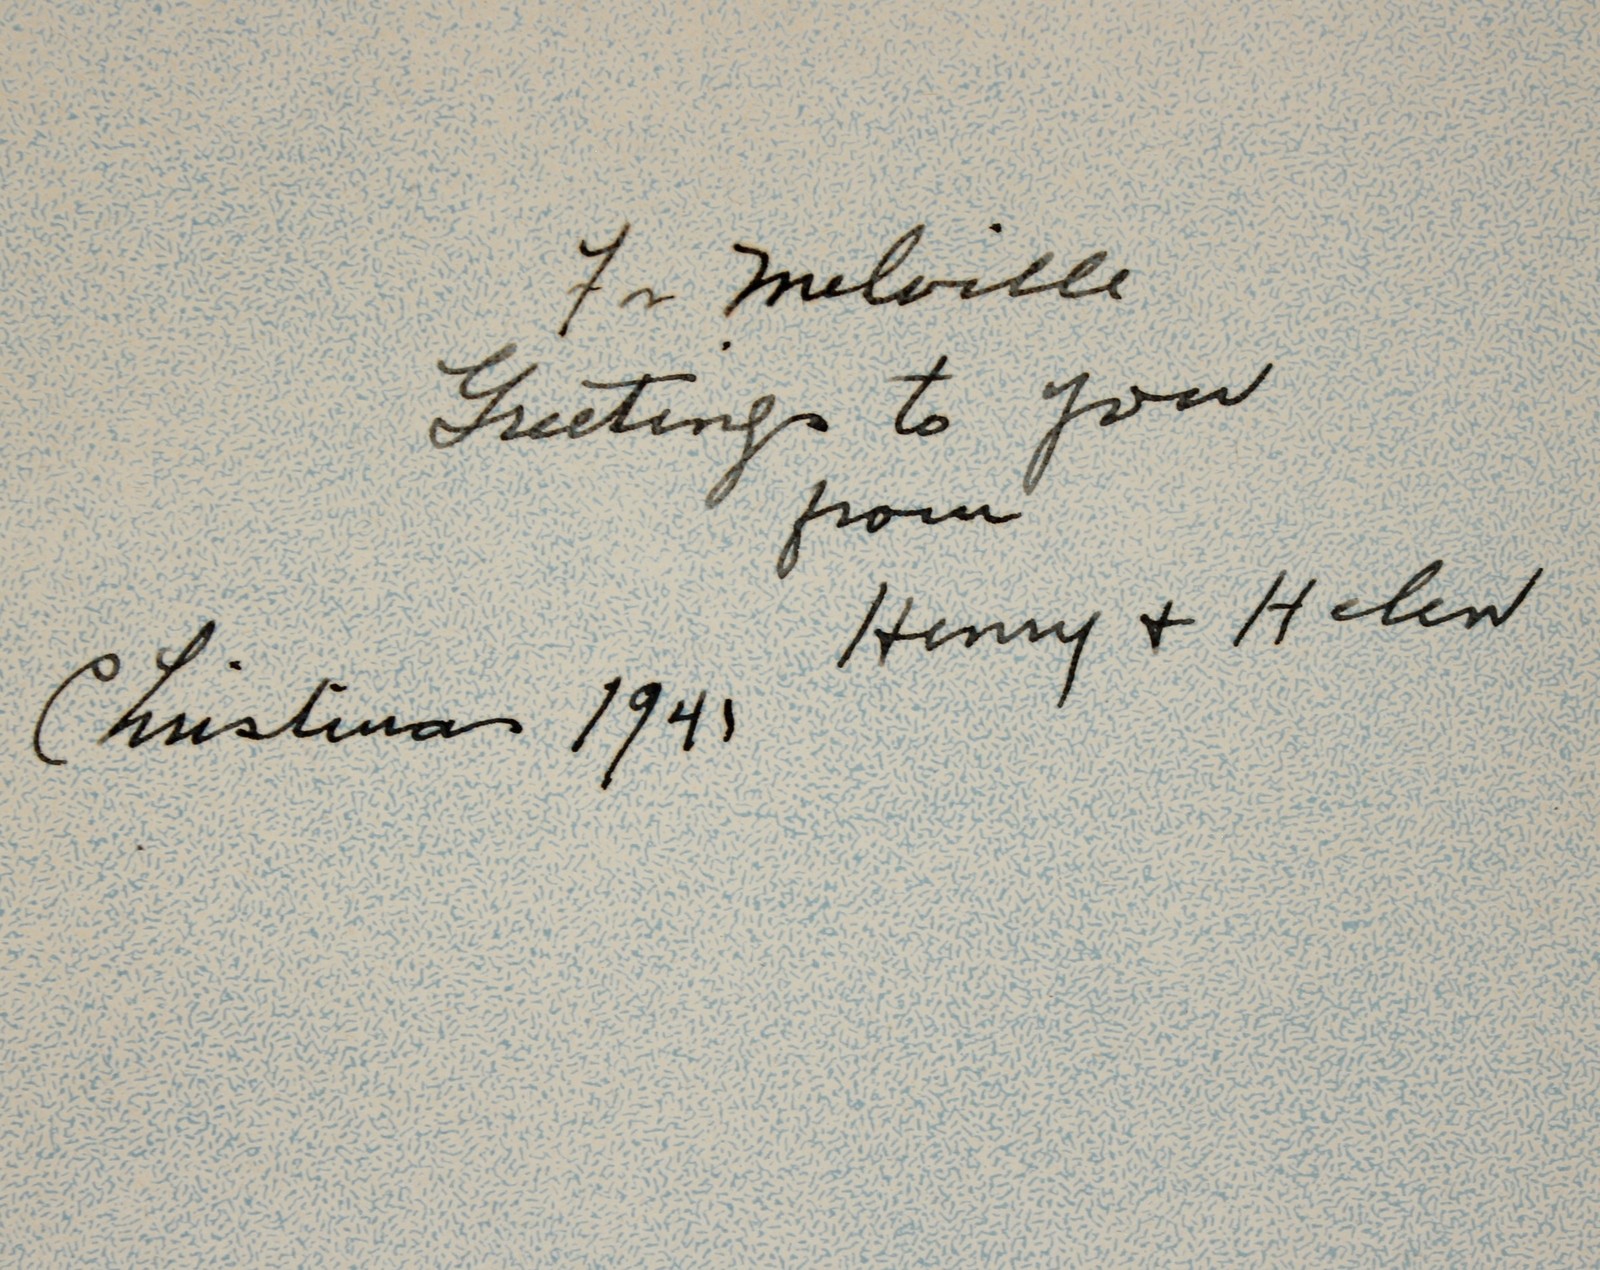 For Melville
Greetings to you
from
Henry + Helen
Christmas 1941